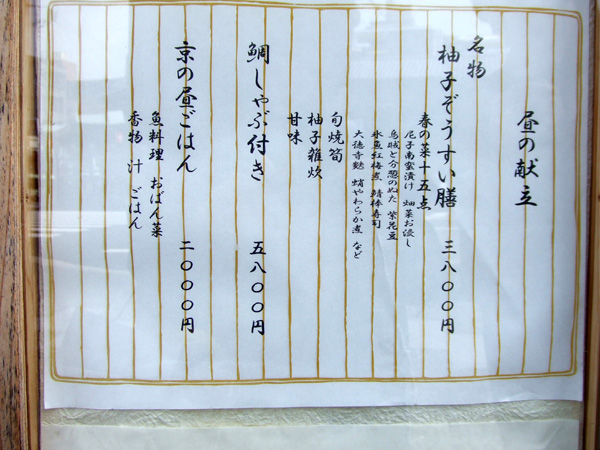 昼の献立
名物
柚子ぞうすい膳 三八〇〇円
春の菜十五点
尼子南蛮漬け 畑菜お浸し
烏賊と分葱のぬた 紫花豆
氷魚紅梅煮 鯖棒寿司
大徳寺麩 蛸やわらか煮 など
旬焼筍
柚子雑炊
甘味
鯛しゃぶ付き 五八〇〇円
京の昼ごはん 二〇〇〇円
魚料理 おばん菜
香物 汁 ごはん